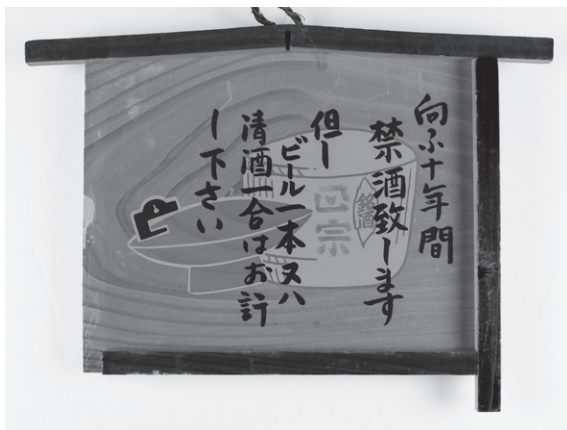 向ふ十年間
禁酒致します
但し
ビール一本又ハ
清酒一合はお許
し下さい
銘酒
正宗